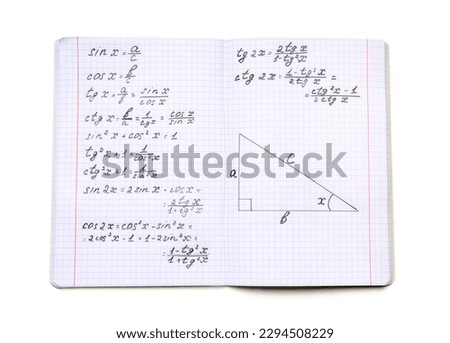 sin x = a/c
cos x = b/c
tg x = a/b = sin x/cos x
ctg x = b/a = 1/tg x = cos x/sin x
sin² x + cos² x = 1
tg² x + 1 = 1/cos² x
ctg² x + 1 = 1/sin² x
sin 2x = 2 sin x · cos x =
= 2 tg x/1 + tg² x
cos 2x = cos² x - sin² x =
= 2 cos² x - 1 = 1 - 2 sin² x =
= 1 - tg² x/1 + tg² x
tg 2x = 2 tg x/1 - tg² x
ctg 2x = 1 - tg² x/2 tg x =
= ctg² x - 1/2 ctg x
a
c
x
b
shutterstock
IMAGE ID: 2294508229
www.shutterstock.com